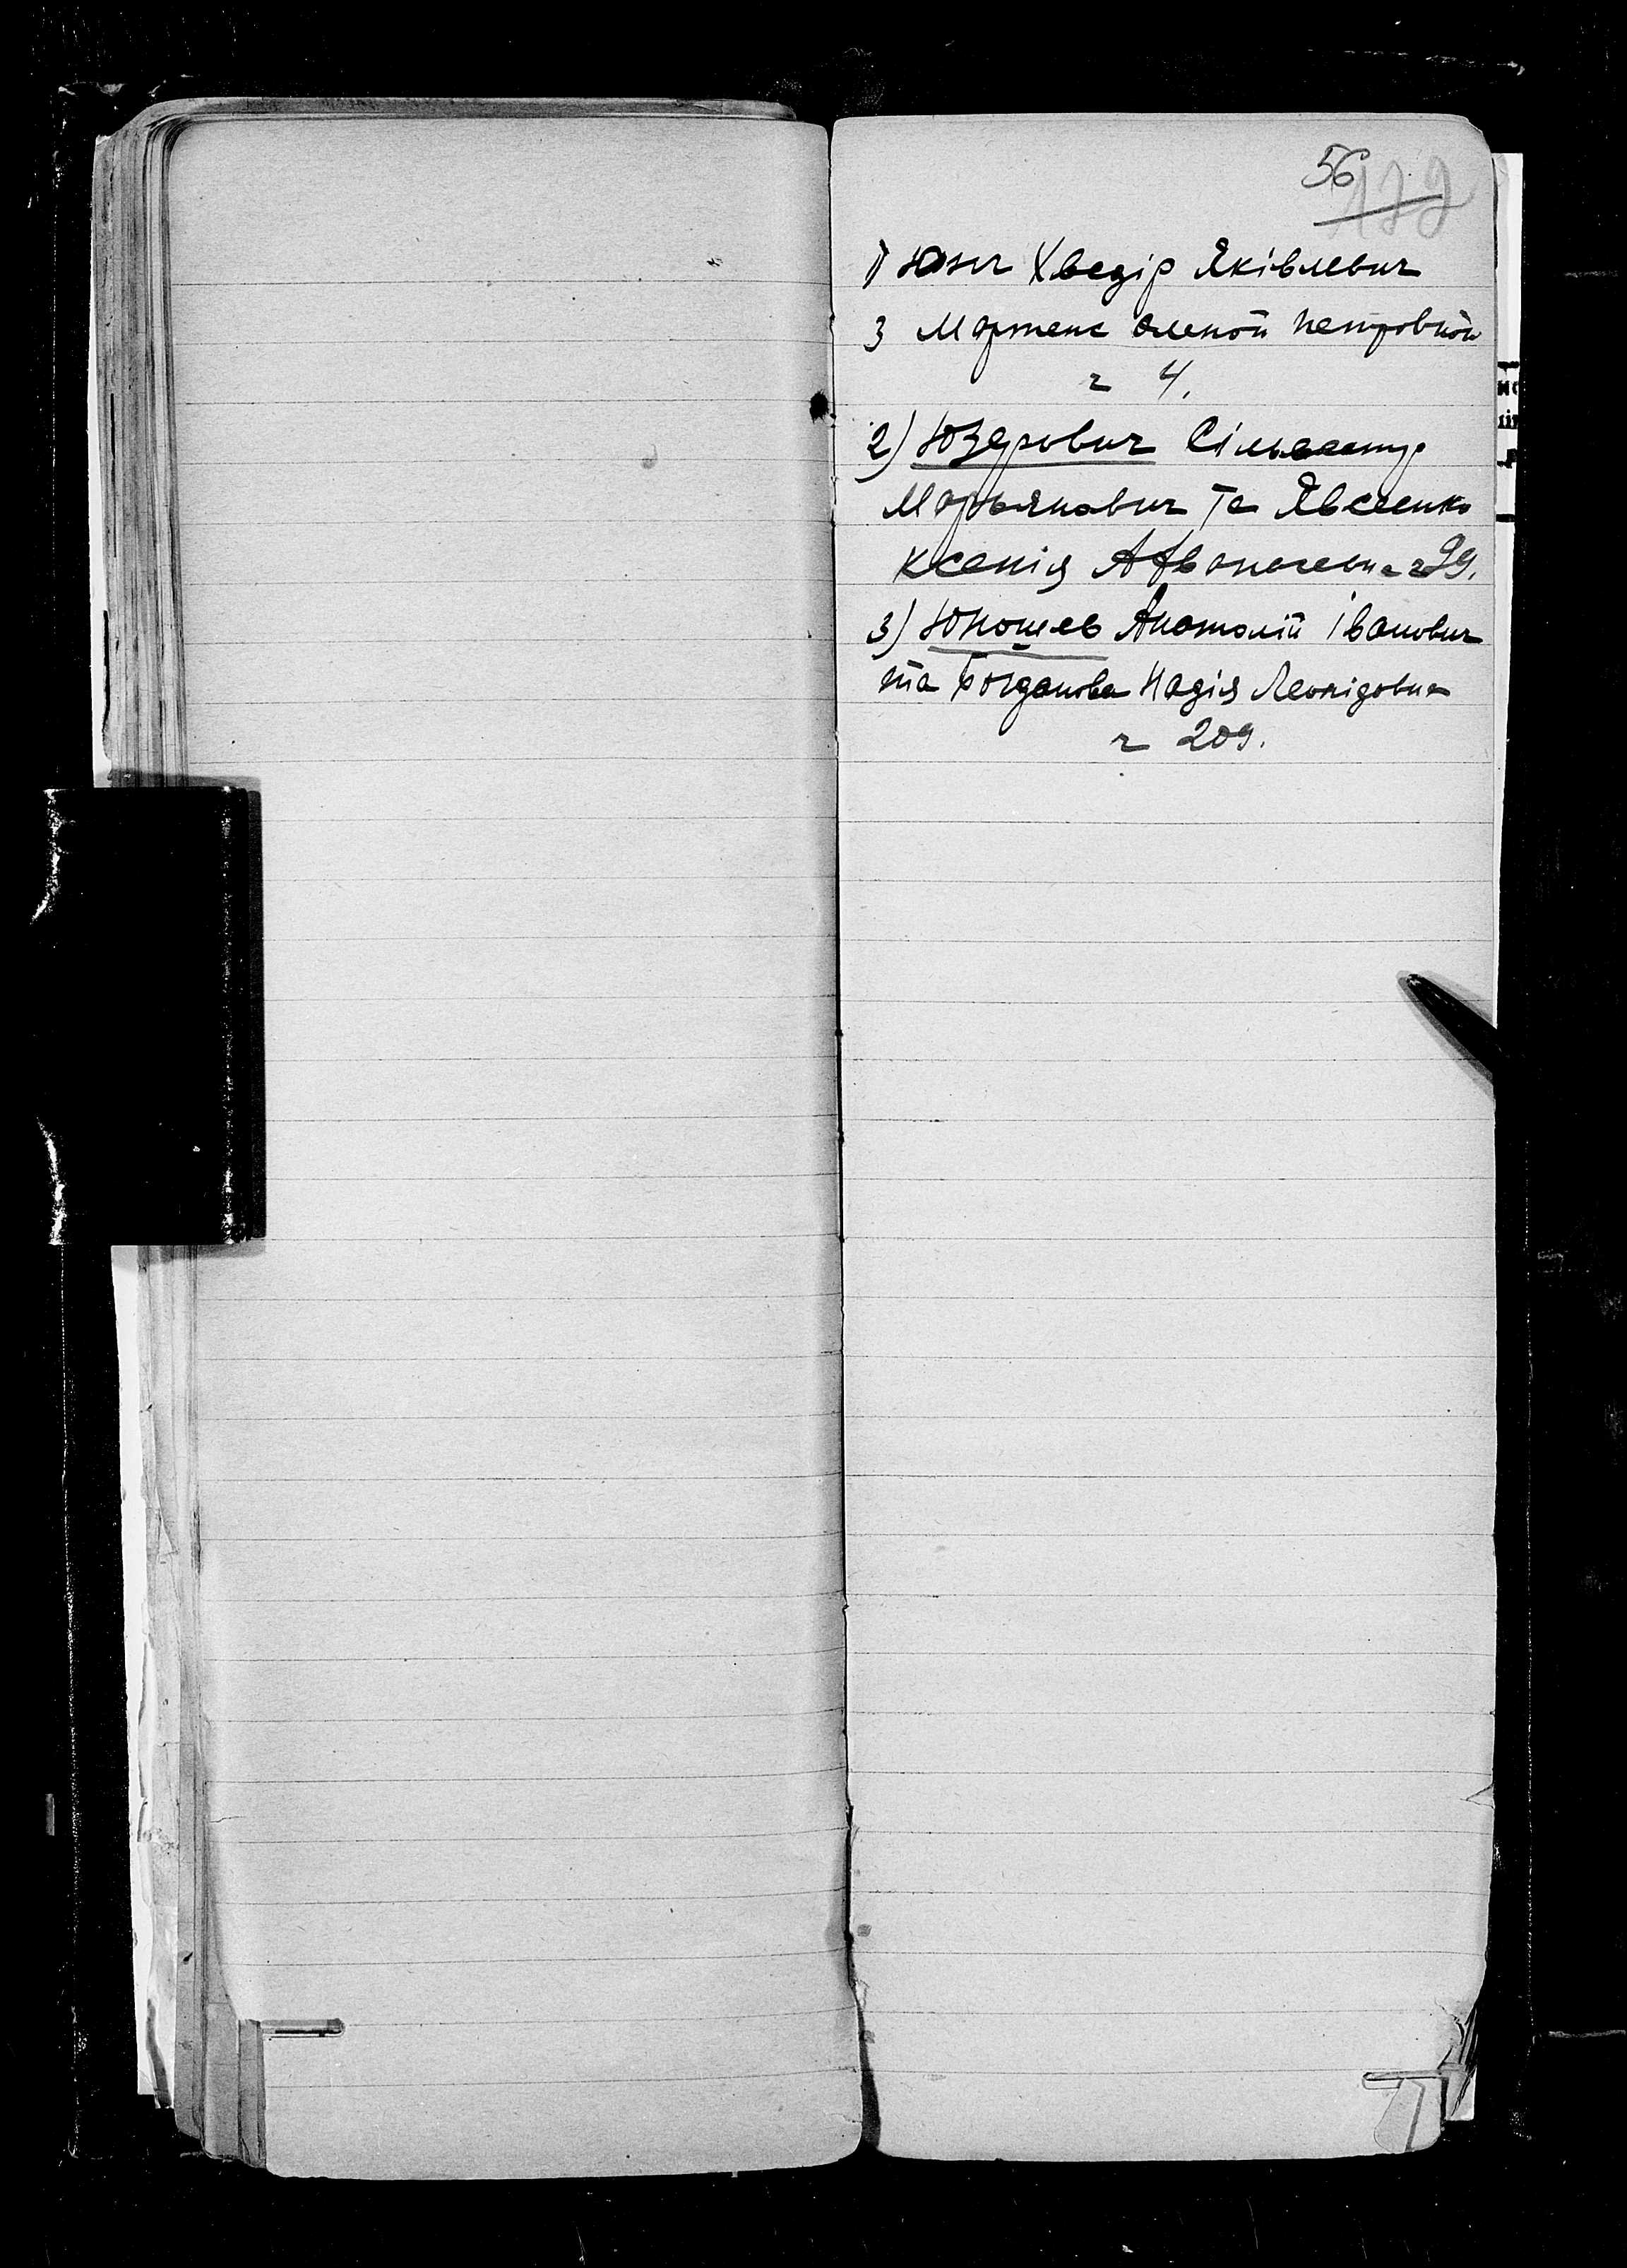 56
179
1) Юнг Хведір Яківлевич
з Мартенс Оленой Петровной
ч 4.
2) Юзерович Сільвестр
Марьянович та Явсеенко
Ксенія Афанасевна ч 99.
3) Юношев Анатолій Іванович
та Богданова Надія Леонідовна
ч 209.